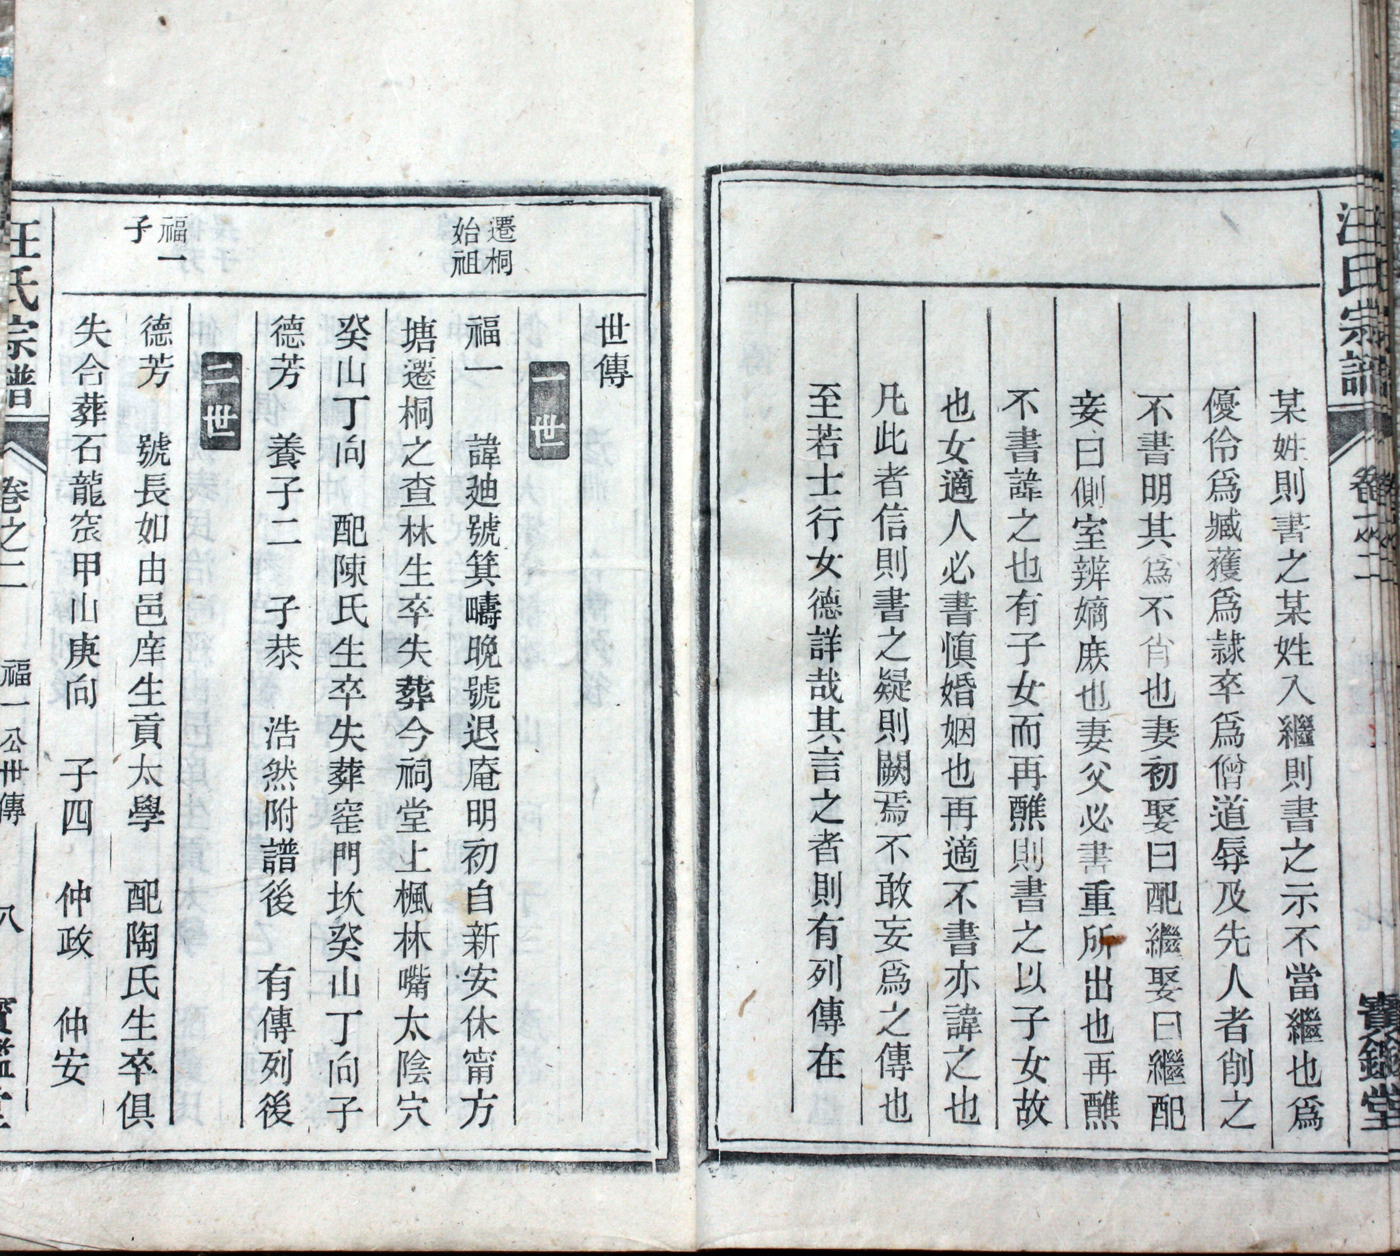 汪氏宗譜
卷之二
寶鑑堂
某姓則書之某姓入繼則書之示不當繼也爲
優伶爲臧獲爲隷卒爲僧道辱及先人者削之
不書明其爲不肖也妻初娶曰配繼娶曰繼配
妾曰側室辨嫡庶也妻父必書重所出也再醮
不書諱之也有子女而再醮則書之以子女故
也女適人必書愼婚姻也再適不書亦諱之也
凡此者信則書之疑則闕焉不敢妄爲之傳也
至若士行女德詳哉其言之者則有列傳在
世傳
一世
遷桐
始祖
福一 諱廸號箕疇晚號退庵明初自新安休甯方
塘遷桐之查林生卒失葬今祠堂上楓林嘴太陰穴
癸山丁向 配陳氏生卒失葬窑門坎癸山丁向子
德芳 養子二 子恭 浩然附譜後 有傳列後
二世
福一
子
德芳 號長如由邑庠生貢太學 配陶氏生卒俱
失合葬石龍窊甲山庚向 子四 仲政 仲安
汪氏宗譜
卷之二
福一公世傳
八
寶鑑堂